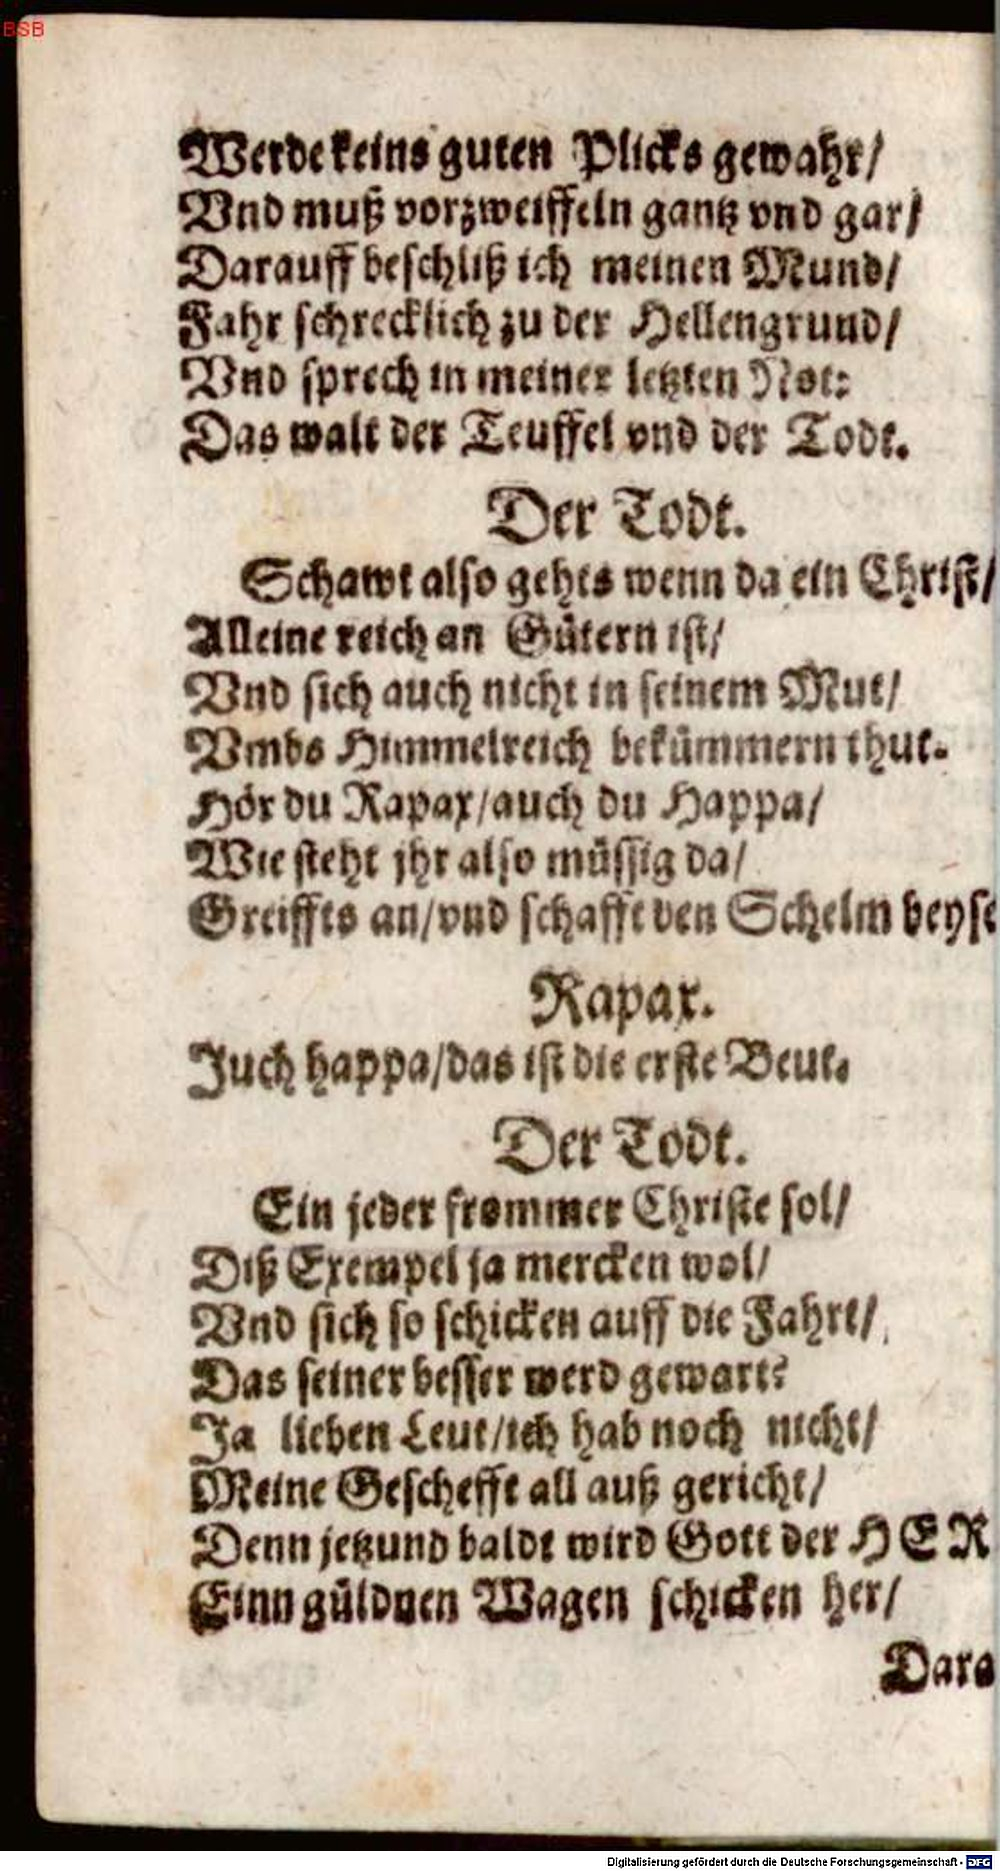 BSB
Werde keins guten Plicks gewahr/
Vnd muß vorzweiffeln gantz vnd gar/
Darauff beschliß ich meinen Mund/
Fahr schrecklich zu der Hellengrund/
Vnd sprech in meiner letzten Not:
Das walt der Teuffel vnd der Todt.
Der Todt.
Schawt also gehts wenn da ein Christ/
Alleine reich an Gütern ist/
Vnd sich auch nicht in seinem Mut/
Vmbs Himmelreich bekümmern thut.
Hör du Rapax/auch du Happa/
Wie steht jhr also müssig da/
Greiffts an/vnd schafft den Schelm beyse
Rapax.
Juch happa/das ist die erste Beut.
Der Todt.
Ein jeder frommer Christe sol/
Diß Exempel ja mercken wol/
Vnd sich so schicken auff die Fahrt/
Das seiner besser werd gewart:
Ja lieben Leut/ich hab noch nicht/
Meine Geschefft all auß gericht/
Denn jetzund baldt wird Gott der HER
Einn güldnen Wagen schicken her/
Dara
Digitalisierung gefördert durch die Deutsche Forschungsgemeinschaft - DFG